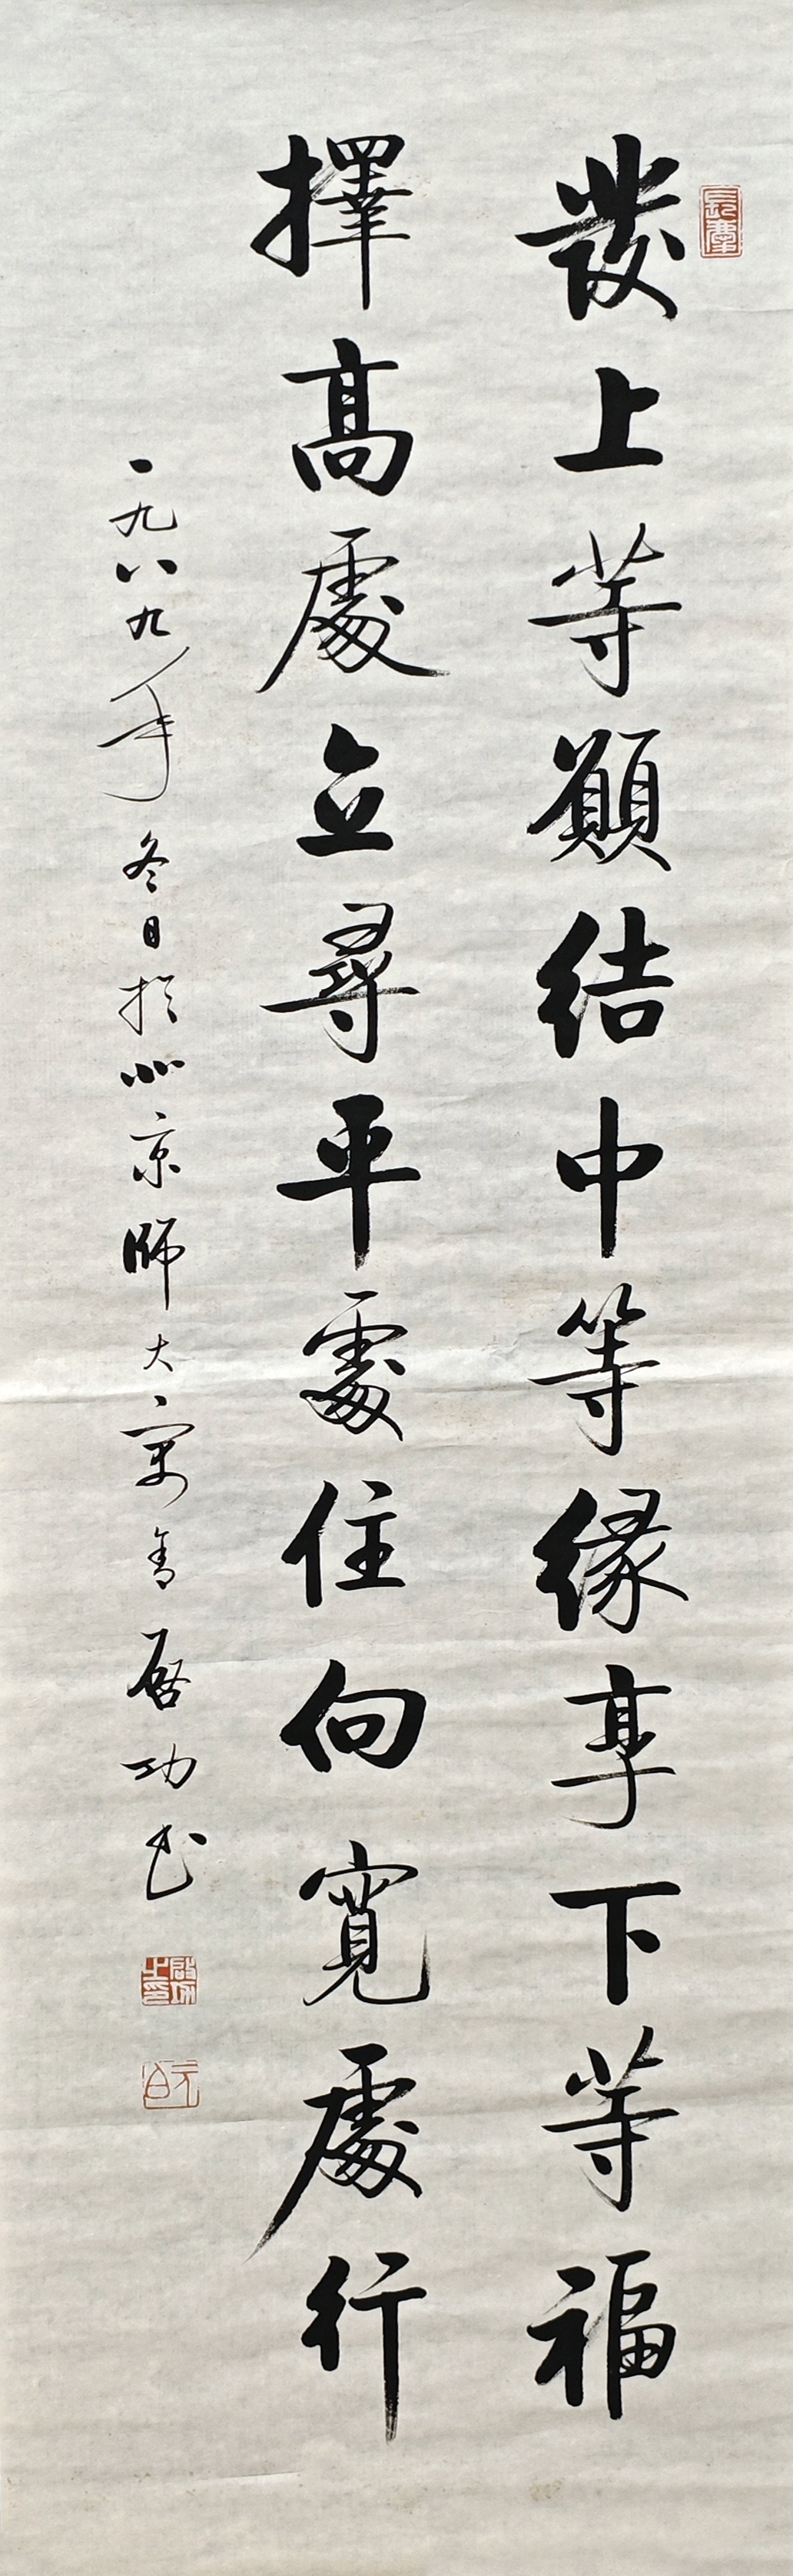 發上等願結中等緣享下等福
擇高處立尋平處住向寬處行
一九八九年冬日於北京師大寓舍啓功書
啟功之印
元白